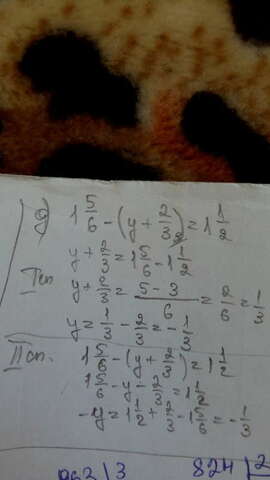 g) 1 5/6 - (y + 2/3) = 1 1/2
I сп. y + 2/3 = 1 5/6 - 1 1/2
y + 2/3 = (5 - 3)/6 = 2/6 = 1/3
y = 1/3 - 2/3 = - 1/3
II сп. 1 5/6 - (y + 2/3) = 1 1/2
1 5/6 - y - 2/3 = 1 1/2
-y = 1 1/2 + 2/3 - 1 5/6 = - 1/3
963 | 3 824 | 2